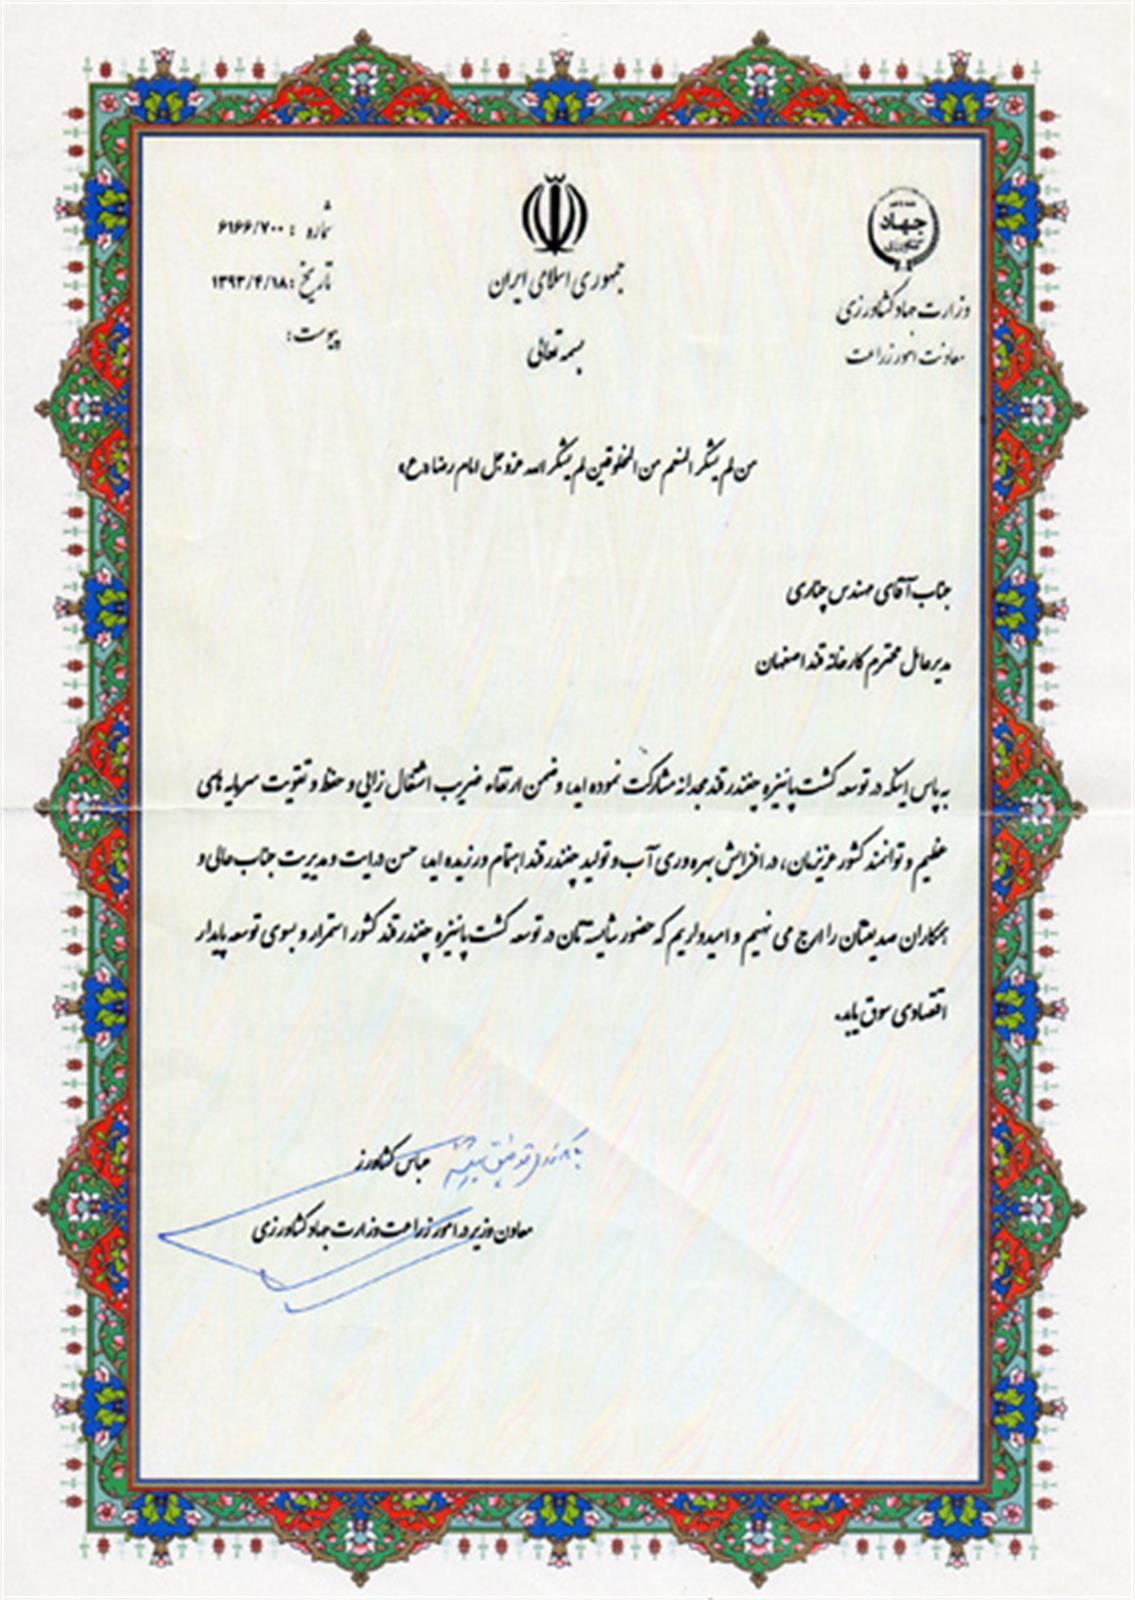 جهاد
کشاورزی
وزارت جهاد کشاورزی
معاونت امور زراعت
جمهوری اسلامی ایران
بسمه تعالی
شماره : ۶۱۶۶/۷۰۰
تاریخ : ۱۳۹۳/۴/۱۸
پیوست :
من لم یشکر المنعم من المخلوقین لم یشکر الله عزوجل امام رضا (ع)
جناب آقای مهندس چناری
مدیرعامل محترم کارخانه قند اصفهان
به پاس اینکه در توسعه کشت پائیزه چغندرقند مجدانه مشارکت نموده اید، و ضمن ارتقاء ضریب اشتغال زایی و حفظ و تقویت سرمایه های
عظیم و توانمند کشور عزیزمان، در افزایش بهره وری آب و تولید چغندرقند اهتمام ورزیده اید، حسن درایت و مدیریت جناب عالی و
همکاران صدیقتان را ارج می نهیم و امیدواریم که حضور شایسته تان در توسعه کشت پائیزه چغندرقند کشور استمرار و بسوی توسعه پایدار
اقتصادی سوق یابد.
عباس کشاورز
معاون وزیر در امور زراعت وزارت جهاد کشاورزی